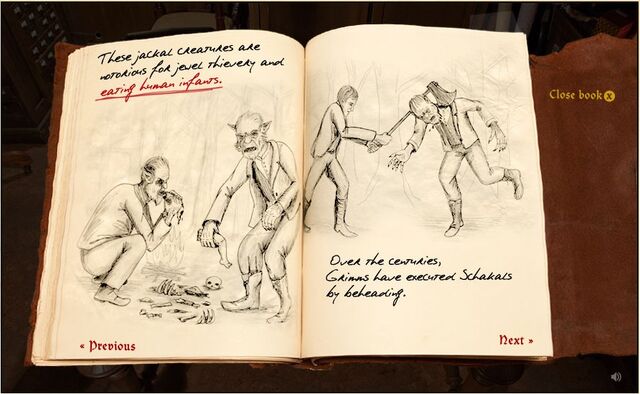 These jackal creatures are
notorious for jewel thievery and
eating human infants.
Over the centuries,
Grimms have executed Schakals
by beheading.
Close book x
« Previous
Next »